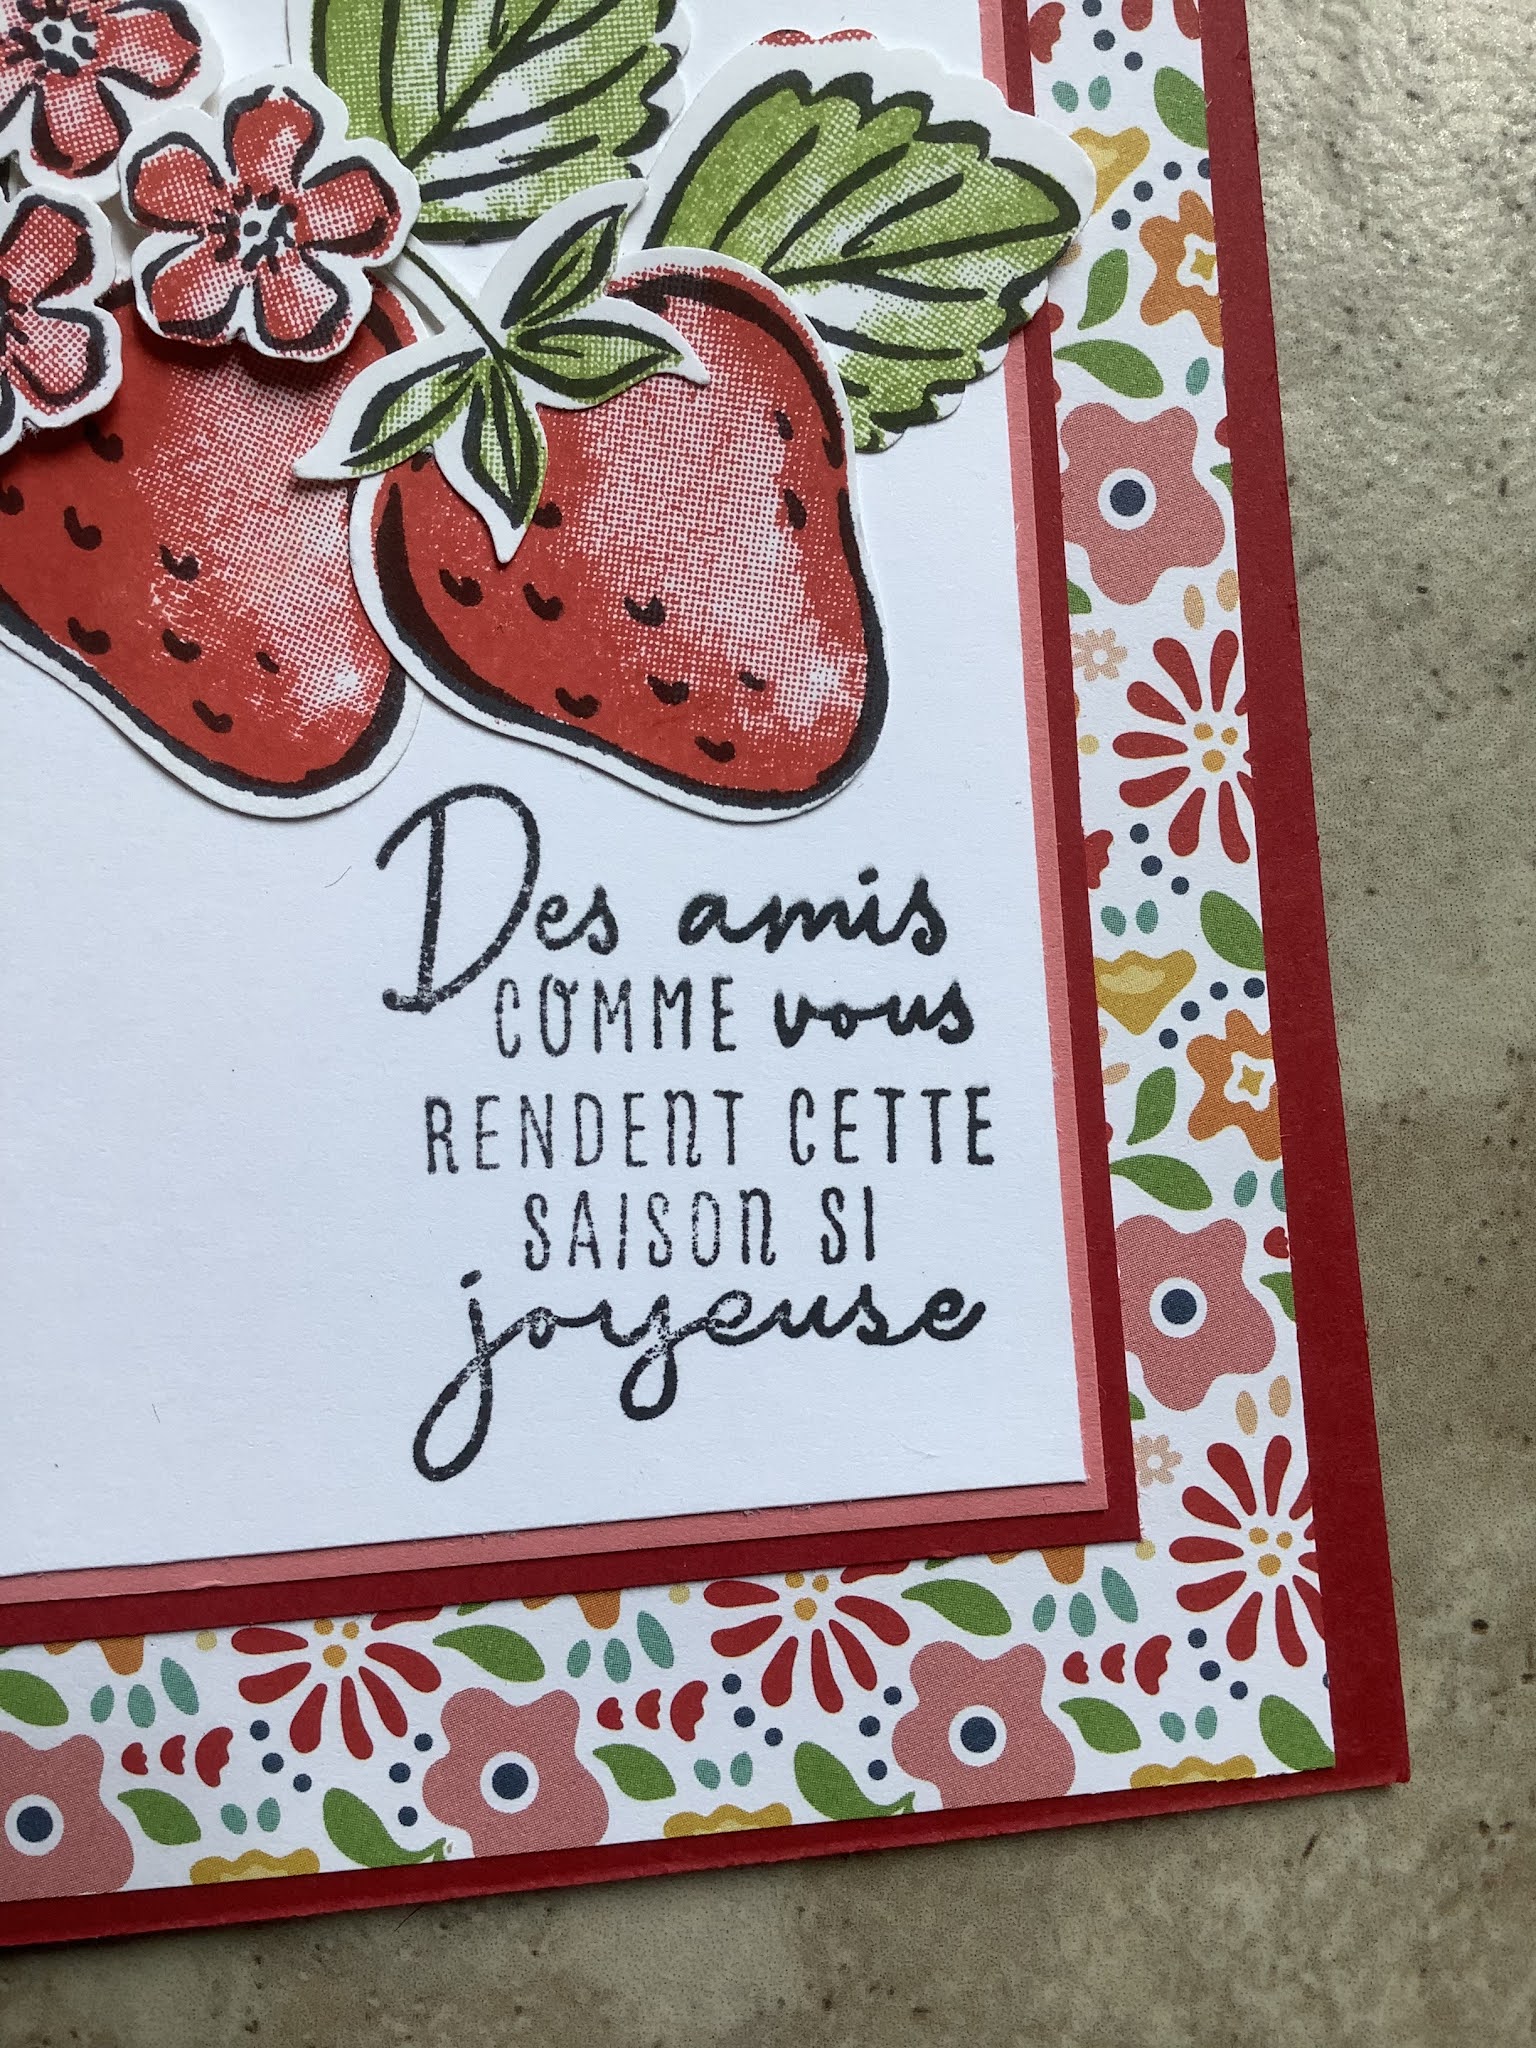 Des amis
COMME vous
RENDENT CETTE
SAISON SI
joyeuse